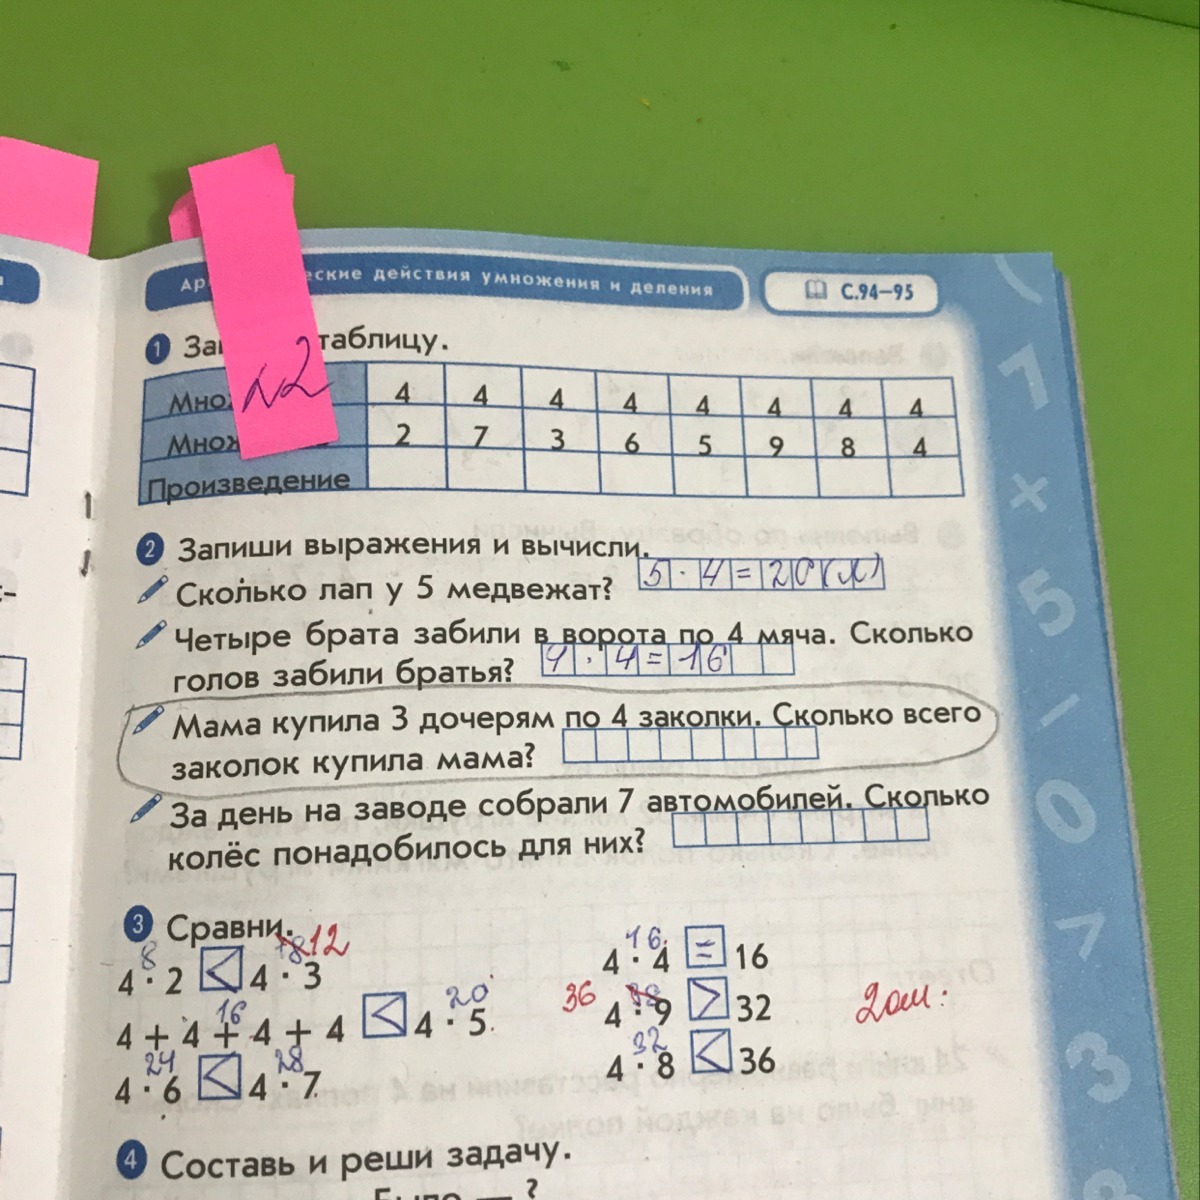 еские действия умножения и деления
С.94–95
1 За таблицу.
№2
Мно 4 4 4 4 4 4 4 4
Мнох 2 7 3 6 5 9 8 4
Произведение
2 Запиши выражения и вычисли.
Сколько лап у 5 медвежат? 5 · 4 = 20 (л)
Четыре брата забили в ворота по 4 мяча. Сколько
голов забили братья? 4 · 4 = 16
Мама купила 3 дочерям по 4 заколки. Сколько всего
заколок купила мама?
За день на заводе собрали 7 автомобилей. Сколько
колёс понадобилось для них?
3 Сравни.
8 18 12
4 · 2 < 4 · 3
16 20
4 + 4 + 4 + 4 < 4 · 5
24 28
4 · 6 < 4 · 7
16
4 · 4 = 16
36
4 · 9 > 32
32
4 · 8 < 36
2ош:
4 Составь и реши задачу.
Было — ?